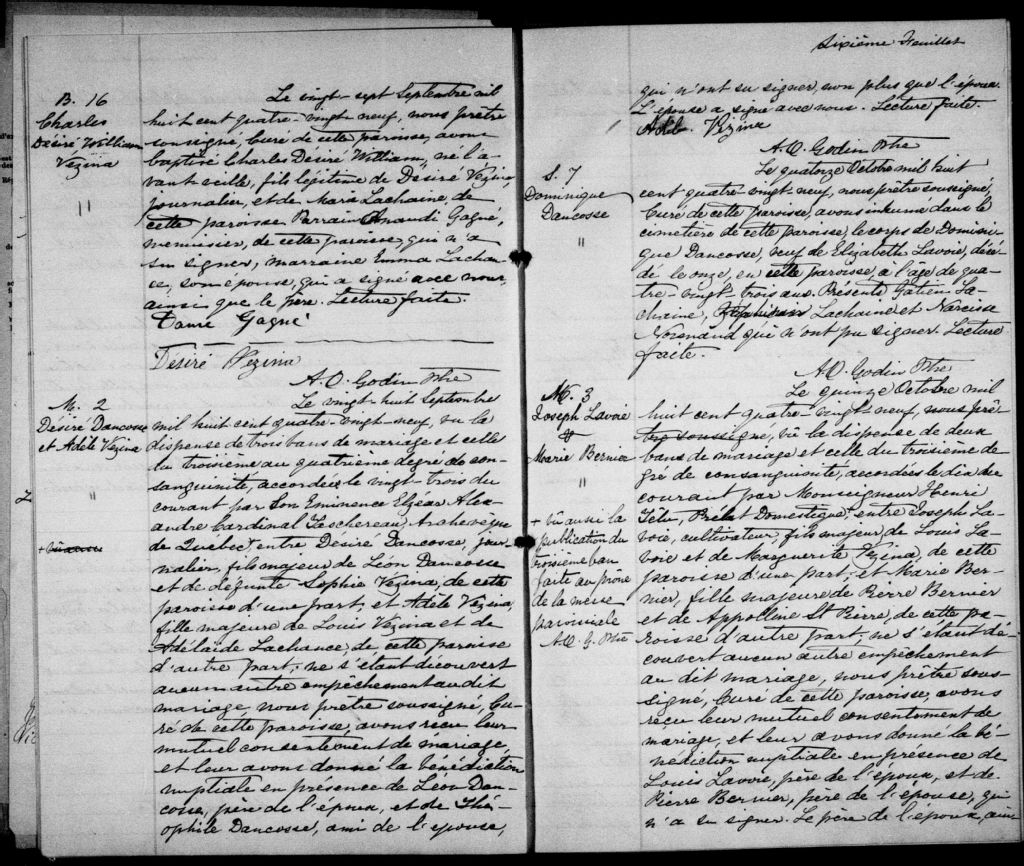 B. 16
Charles
Désiré William
Vezina
"
Le vingt-sept Septembre mil
huit cent quatre-vingt-neuf, nous prêtre
soussigné, Curé de cette paroisse, avons
baptisé Charles Désiré William, né l'a-
vant-veille, fils légitime de Désiré Vezina,
journalier, et de Lachaine, de
cette paroisse Parrain Gagné,
menuisier, de cette paroisse, qui n'a
su signer, marraine Emma Lachan-
ce, son épouse, qui a signé avec nous,
ainsi que le père. Lecture faite.
Gagné
Désiré Vezina
A. O. Godin Ptre
M. 2
Désiré Dancosse
et Adèle Vézina
"
Le vingt-huit Septembre
mil huit cent quatre-vingt-neuf, vu la
dispense de trois bans de mariage et celle
du troisième au quatrième degré de con-
sanguinité, accordées le vingt-trois du
courant par Son Eminence Elzéar Alex-
andre Cardinal Taschereau, Archevêque
de Québec, entre Désiré Dancosse, jour-
nalier, fils majeur de Léon Dancosse
et de défunte Sophie Vezina, de cette
paroisse d'une part, et Adèle Vezina,
fille majeure de Louis Vezina et de
Adélaïde Lachance, de cette paroisse
d'autre part; ne s'étant découvert
aucun autre empêchement au dit
mariage, nous prêtre soussigné, Cu-
ré de cette paroisse, avons reçu leur
mutuel consentement de mariage,
et leur avons donné la bénédiction
nuptiale en présence de Léon Dan-
cosse, père de l'époux, et de Thé-
ophile Dancosse, ami de l'épouse,
Sixième Feuillet
qui n'ont su signer, non plus que l'époux.
L'épouse a signé avec nous. Lecture faite.
Adèle Vezina
A. O. Godin Ptre
S. 7
Dominique
Dancosse
"
Le quatorze Octobre mil huit
cent quatre-vingt-neuf, nous prêtre soussigné,
Curé de cette paroisse, avons inhumé dans le
cimetière de cette paroisse, le corps de Domini-
que Dancosse, veuf de Elizabeth Lavoie, décé-
dé le onze, en cette paroisse, à l'âge de qua-
tre-vingt-trois ans. Présents Gatien La-
chaine, Lachaine et Narcisse
Normand qui n'ont pu signer. Lecture
faite.
A. O. Godin Ptre
M. 3
Joseph Lavoie
&
Marie Bernier
"
+ vu aussi la
publication du
troisième ban
faite au prône
de la messe
paroissiale
A. O. G. Ptre
Le quinze Octobre mil
huit cent quatre-vingt-neuf, nous prê-
tre soussigné, vu la dispense de deux
bans de mariage et celle du troisième de-
gré de consanguinité, accordées le dix du
courant par Monseigneur Henri
Têtu, Prélat Domestique, + entre Joseph La-
voie, cultivateur, fils majeur de Louis La-
voie et de Marguerite Vezina, de cette
paroisse d'une part; et Marie Ber-
nier, fille majeure de Pierre Bernier
et de Appolline St Pierre, de cette pa-
roisse d'autre part; ne s'étant dé-
couvert aucun autre empêchement
au dit mariage, nous prêtre sous-
signé, Curé de cette paroisse, avons
reçu leur mutuel consentement de
mariage, et leur avons donné la bé-
nédiction nuptiale en présence de
Louis Lavoie, père de l'époux, et de
Pierre Bernier, père de l'épouse, qui
n'a su signer. Le père de l'époux, ain